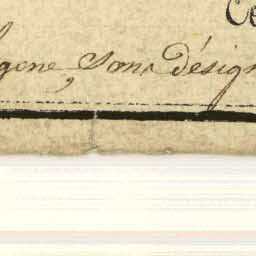 Ce
gene, sans désign